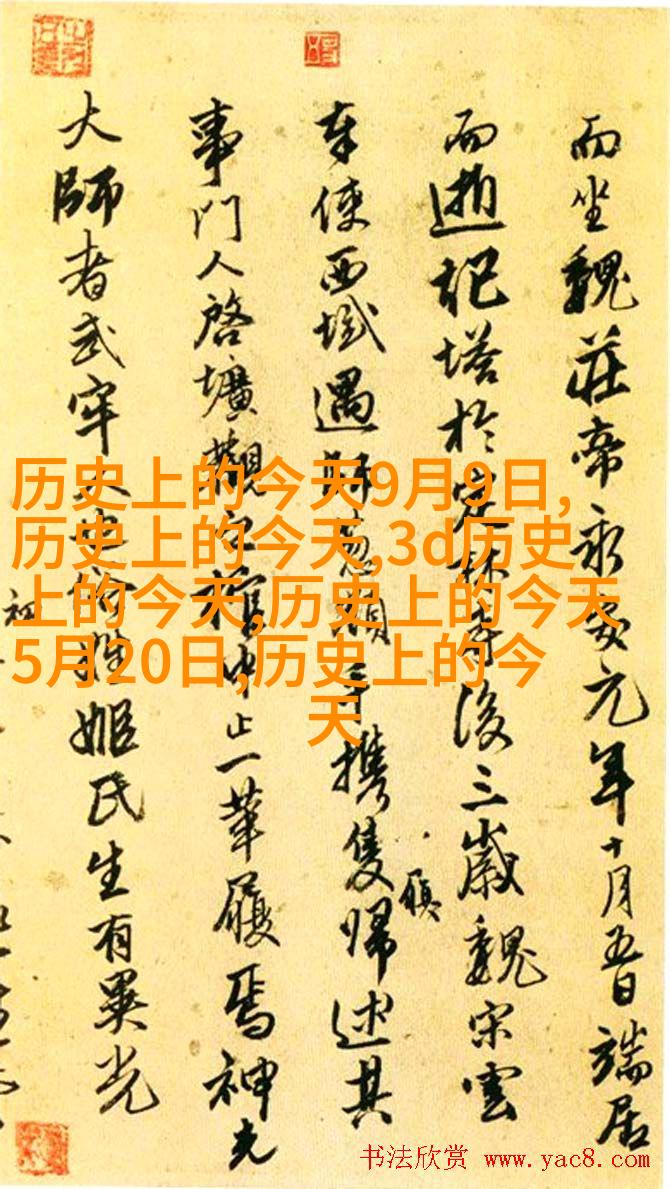 而坐魏莊帝永安元年十月五日端居
而逝記塔於定林寺後三歲魏宋雲
奉使西域遇師葱嶺手攜隻歸述其
履
事門人啓壙觀之棺中止一革履焉神光
大師者武牢人也俗姓姬氏生有異光
历史上的今天9月9日,
历史上的今天,3d历史
上的今天,历史上的今天
5月20日,历史上的今
天
书法欣赏 www.yac8.com